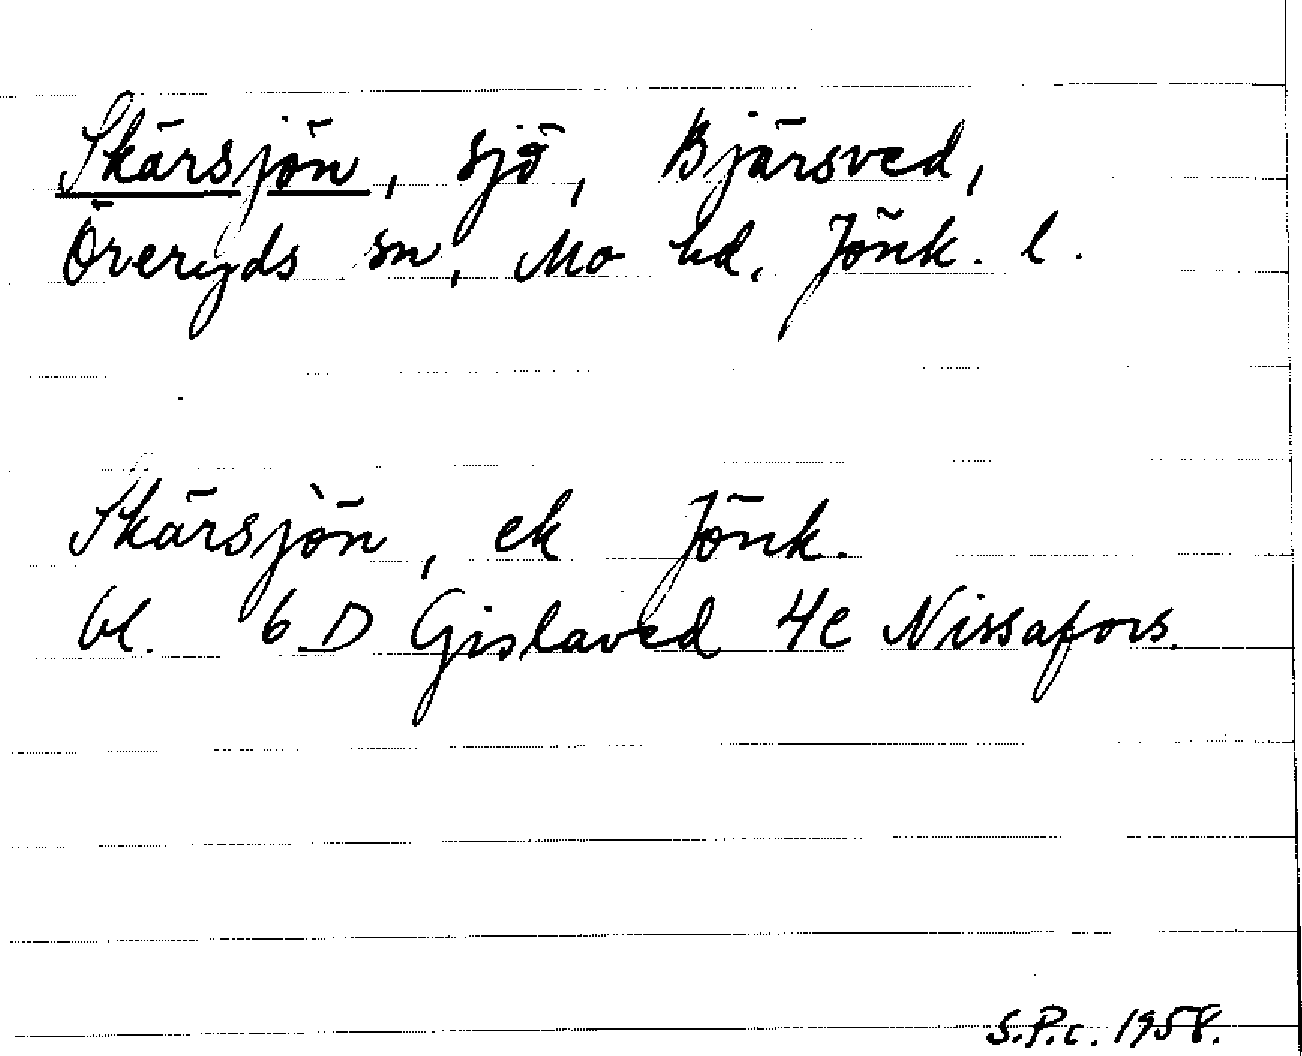 Skärsjön, sjö, Bjärsved,
Öreryds sn, Mo hd. Jönk. l.
Skärsjön, ek Jönk.
bl. 6 D Gislaved 4e Nissafors.
S.P.c. 1958.